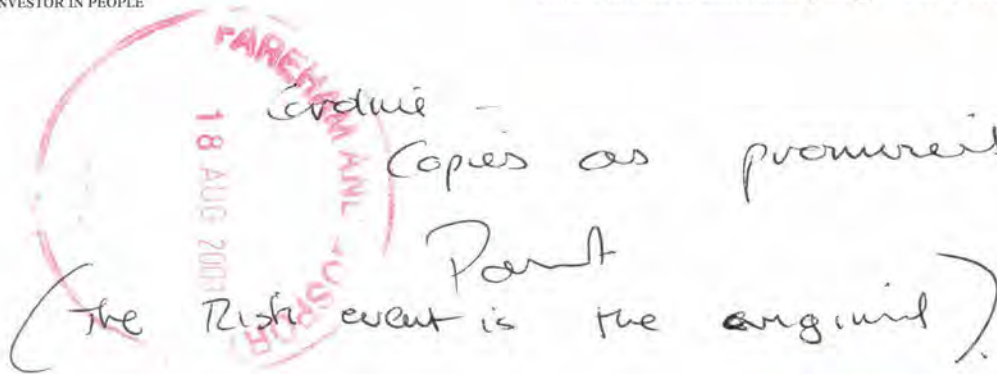 INVESTOR IN PEOPLE
FAREHAM AN
18 AUG 200
Copies as promised
(The Risk event is the original).